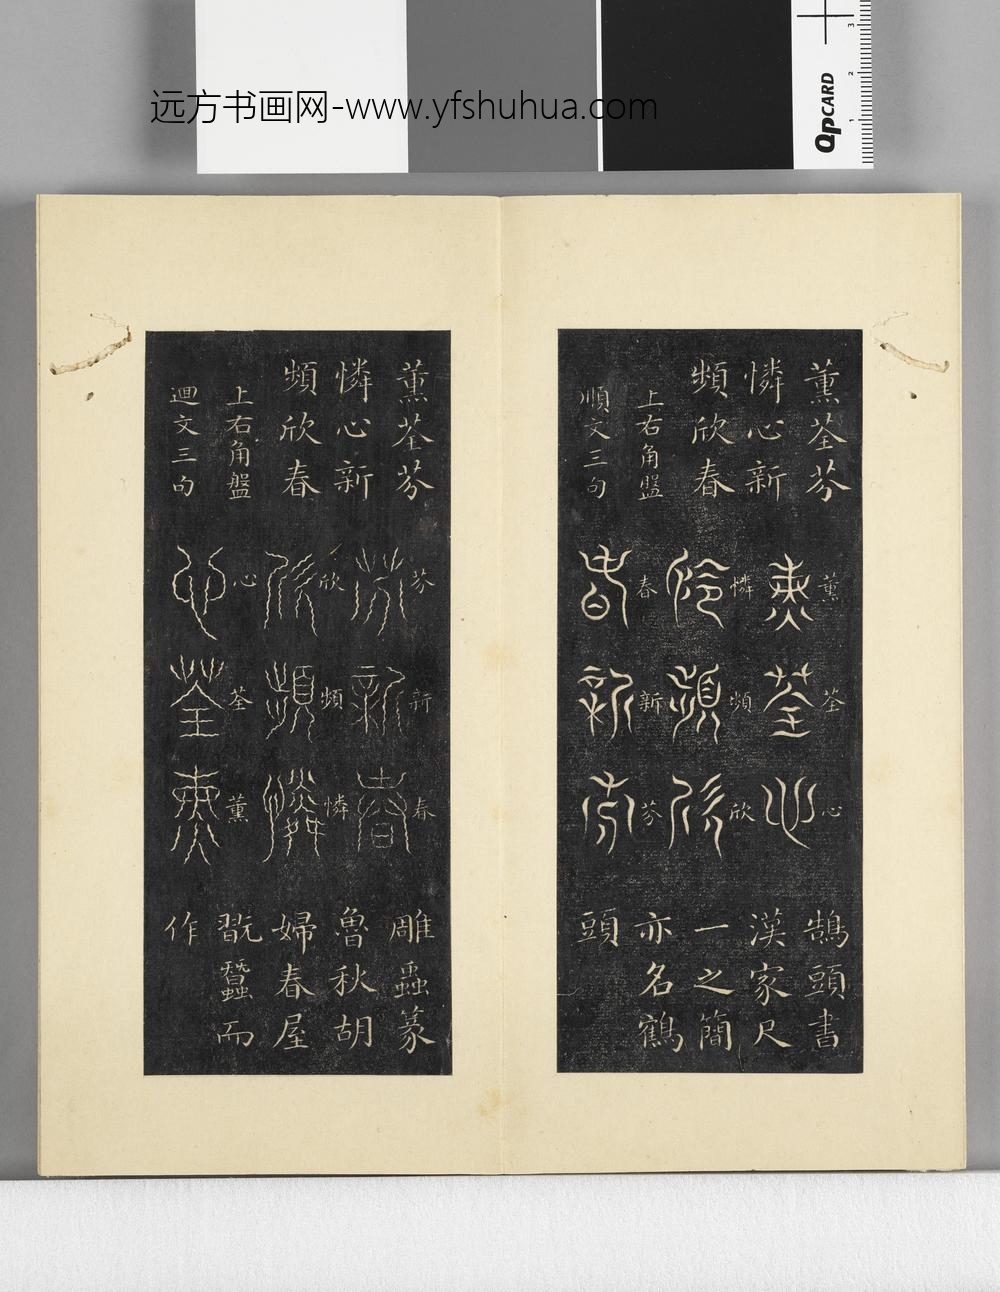 远方书画网-www.yfshuhua.com
QPCARD
1
2
3
薰荃芬
憐心新
頻欣春
上右角盤
順文三句
薰 荃 心
憐 頻 欣
春 新 芬
鵠頭書
漢家尺
一之簡
亦名鶴
頭
薰荃芬
憐心新
頻欣春
上右角盤
迴文三句
芬 新 春
欣 頻 憐
心 荃 薰
雕蟲篆
魯秋胡
婦春屋
翫蠶而
作